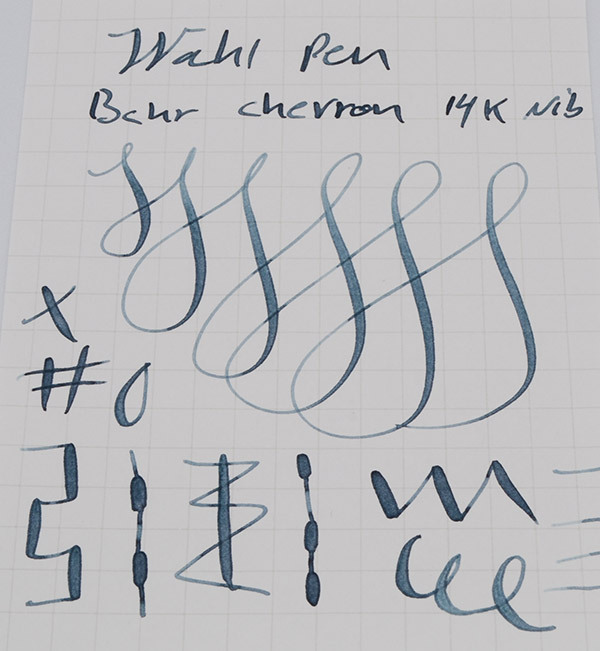 Wahl Pen
Bchr chevron 14K Nib
x
# 0